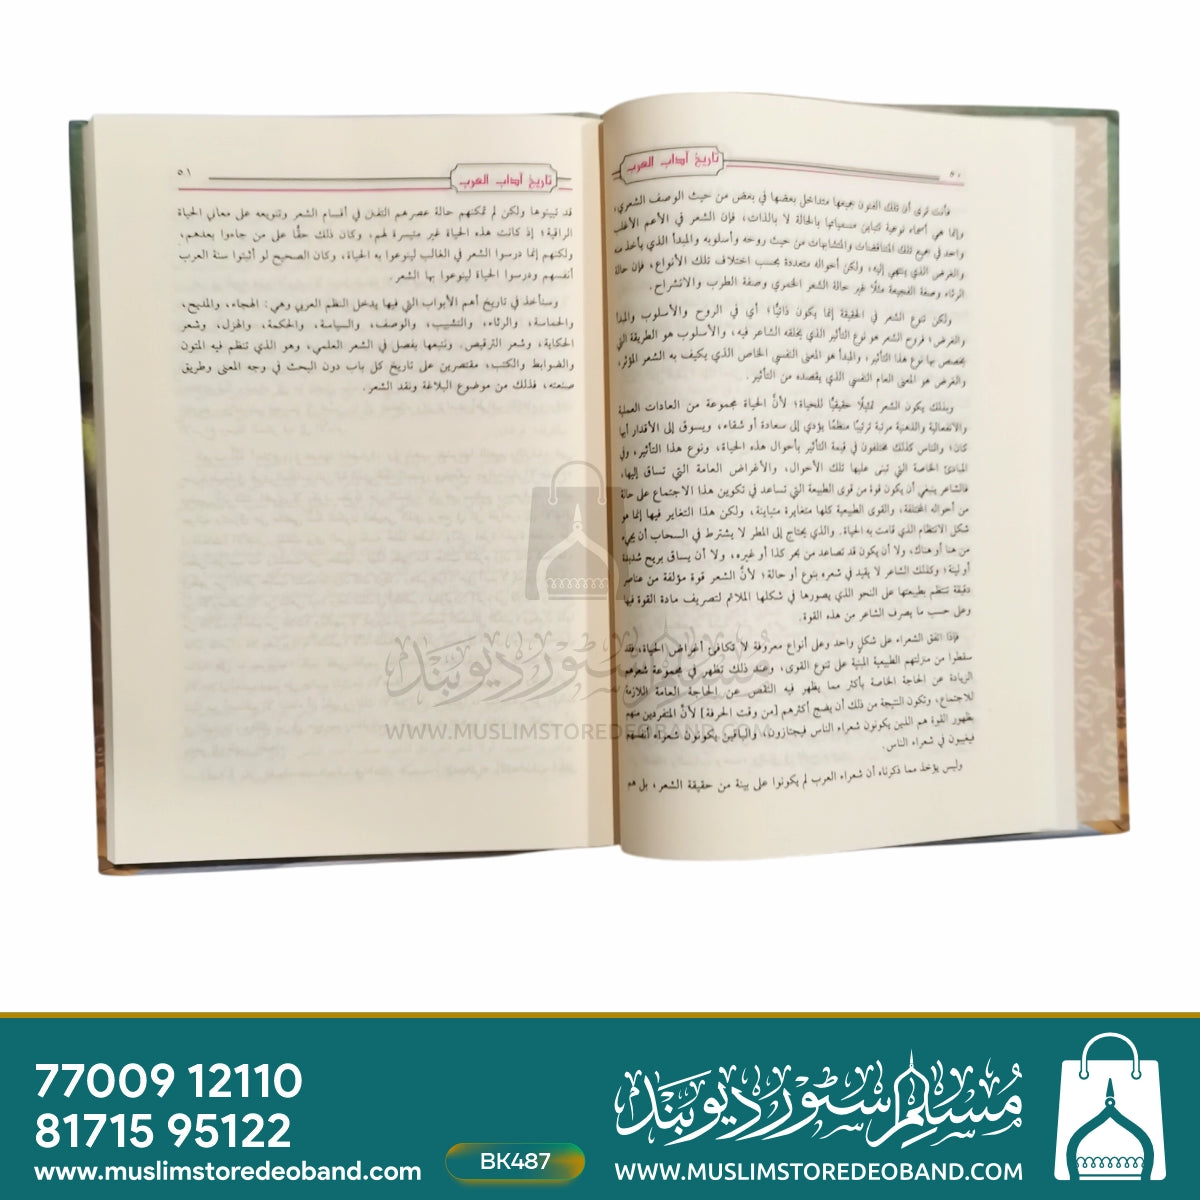 تاريخ آداب العرب
٥٠
فأنت ترى أن تلك الفنون جميعها متداخل بعضها في بعض من حيث الوصف الشعري،
وإنما هي أسماء نوعية تتباين مسمياتها بالحالة لا بالذات، فإن الشعر في الأعم الأغلب
واحد في جميع تلك المتناقضات والمتشابهات من حيث روحه وأسلوبه والمبدأ الذي يأخذ منه
والغرض الذي ينتهي إليه، ولكن أحواله متعددة بحسب اختلاف تلك الأنواع، فإن حالة
الرثاء وصفة الفجيعة مثلًا غير حالة الشعر الخمري وصفة الطرب والانشراح.
ولكن تنوع الشعر في الحقيقة إنما يكون ذاتيًّا؛ أي في الروح والأسلوب والمبدأ
والغرض؛ فروح الشعر هو نوع التأثير الذي يخلقه الشاعر فيه، والأسلوب هو الطريقة التي
يختص بها نوع هذا التأثير، والمبدأ هو المعنى النفسي الخاص الذي يكيف به الشعر المؤثر،
والغرض هو المعنى العام النفسي الذي يقصده من التأثير.
وبذلك يكون الشعر تمثيلًا حقيقيًّا للحياة؛ لأنَّ الحياة مجموعة من العادات العملية
والانفعالية والذهنية مرتبة ترتيبًا منظمًا يؤدي إلى سعادة أو شقاء، ويسوق إلى الأقدار أيها
كان؛ والناس كذلك مختلفون في قيمة التأثير بأحوال هذه الحياة، ونوع هذا التأثير، وفي
المبادئ الخاصة التي تبنى عليها تلك الأحوال، والأغراض العامة التي تساق إليها،
فالشاعر ينبغي أن يكون قوة من قوى الطبيعة التي تساعد في تكوين هذا الاجتماع على حالة
من أحواله المختلفة، والقوى الطبيعية كلها متغايرة متباينة، ولكن هذا التغاير فيها إنما هو
شكل الانتظام الذي قامت به الحياة. والذي يحتاج إلى المطر لا يشترط في السحاب أن يجيء
من هنا أو هناك، ولا أن يكون قد تصاعد من بحر كذا أو غيره، ولا أن يساق بريح شديدة
أو لينة؛ وكذلك الشاعر لا يقيد في شعره بنوع أو حالة؛ لأنَّ الشعر قوة مؤلفة من عناصر
دقيقة تنتظم بطبيعتها على النحو الذي يصورها في شكلها الملائم لتصريف مادة القوة فيها
وعلى حسب ما يصرف الشاعر من هذه القوة.
فإذا اتفق الشعراء على شكلٍ واحد وعلى أنواع معروفة لا تكافئ أغراض الحياة، فقد
سقطوا من منزلتهم الطبيعية المبنية على تنوع القوى، وعند ذلك تظهر في مجموعة شعرهم
الزيادة عن الحاجة الخاصة بأكثر مما يظهر فيه النقص عن الحاجة العامة اللازمة
للاجتماع، وتكون النتيجة من ذلك أن يضج أكثرهم [من وقت الحرفة] لأنَّ المتفردين منهم
بظهور القوة هم الذين يكونون شعراء الناس فيجتازون، والباقين يكونون شعراء أنفسهم
فيغيبون في شعراء الناس.
وليس يؤخذ مما ذكرناه أن شعراء العرب لم يكونوا على بينة من حقيقة الشعر، بل هم
تاريخ آداب العرب
٥١
قد تبينوها ولكن لم تمكنهم حالة عصرهم التفنن في أقسام الشعر وتنويعه على معاني الحياة
الراقية؛ إذ كانت هذه الحياة غير متيسرة لهم، وكان ذلك حقًّا على من جاءوا بعدهم،
ولكنهم إنما درسوا الشعر في الغالب لينوعوا به الحياة، وكان الصحيح لو أثبتوا سنة العرب
أنفسهم ودرسوا الحياة لينوعوا بها الشعر.
وسنأخذ في تاريخ أهم الأبواب التي فيها يدخل النظم العربي وهي: الهجاء، والمديح،
والحماسة، والرثاء، والتشبيب، والوصف، والسياسة، والحكمة، والهزل، وشعر
الحكاية، وشعر الترقيص. ونتبعها بفصل في الشعر العلمي، وهو الذي تنظم فيه المتون
والضوابط والكتب، مقتصرين على تاريخ كل باب دون البحث في وجه المعنى وطريق
صنعته، فذلك من موضوع البلاغة ونقد الشعر.
مسلم سٹور دیوبند
WWW.MUSLIMSTOREDEOBAND.COM
77009 12110
81715 95122
www.muslimstoredeoband.com
BK487
مسلم سٹور دیوبند
WWW.MUSLIMSTOREDEOBAND.COM